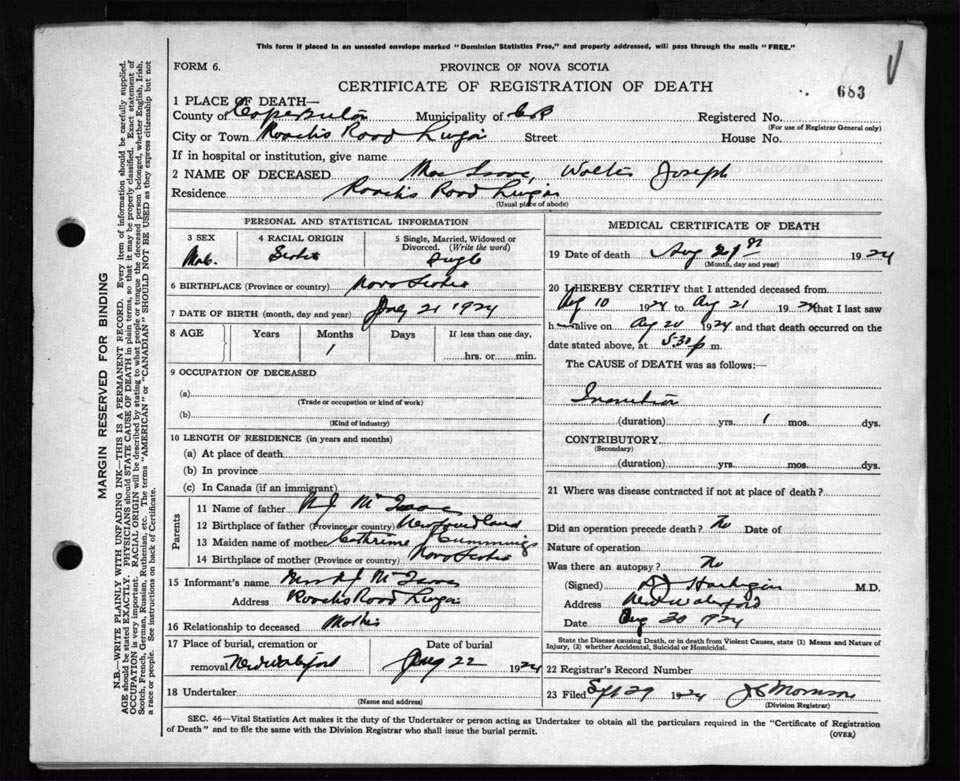 This form if placed in an unsealed envelope marked "Dominion Statistics Free," and properly addressed, will pass through the mails "FREE."
FORM 6.
PROVINCE OF NOVA SCOTIA
CERTIFICATE OF REGISTRATION OF DEATH
683
1 PLACE OF DEATH—
County of Cape Breton Municipality of C B Registered No.
(For use of Registrar General only)
City or Town Road Street House No.
If in hospital or institution, give name
2 NAME OF DECEASED Mac Isaac, Walter Joseph
Residence Road
(Usual place of abode)
PERSONAL AND STATISTICAL INFORMATION
3 SEX
Male
4 RACIAL ORIGIN
Scotch
5 Single, Married, Widowed or Divorced. (Write the word)
Single
6 BIRTHPLACE (Province or country) Nova Scotia
7 DATE OF BIRTH (month, day and year) July 21 1924
8 AGE Years Months Days If less than one day,
1
hrs. or min.
9 OCCUPATION OF DECEASED
(a)
(Trade or occupation or kind of work)
(b)
(Kind of industry)
10 LENGTH OF RESIDENCE (in years and months)
(a) At place of death
(b) In province
(c) In Canada (if an immigrant)
Parents
11 Name of father Mc Isaac
12 Birthplace of father (Province or country) Newfoundland
13 Maiden name of mother Cathrine Cummings
14 Birthplace of mother (Province or country) Nova Scotia
15 Informant's name Mc Isaac
Address Road
16 Relationship to deceased Mother
17 Place of burial, cremation or removal New Waterford
Date of burial
Aug 22 1924
18 Undertaker
(Name and address)
MEDICAL CERTIFICATE OF DEATH
19 Date of death Aug 1924
(Month, day and year)
20 I HEREBY CERTIFY that I attended deceased from
Ag 10 1924 to Ag 21 1924 that I last saw
h alive on Ag 20 1924 and that death occurred on the
date stated above, at 5.30 p m.
The CAUSE OF DEATH was as follows:
Inanition
(duration) yrs. 1 mos. dys.
CONTRIBUTORY
(Secondary)
(duration) yrs. mos. dys.
21 Where was disease contracted if not at place of death?
Did an operation precede death? No Date of
Nature of operation
Was there an autopsy? No
(Signed) M.D.
Address New Waterford
Date Aug 30 1924
State the Disease causing Death, or in death from Violent Causes, state (1) Means and Nature of Injury, (2) whether Accidental, Suicidal or Homicidal.
22 Registrar's Record Number
23 Filed Sept 29 1924 Morrison
(Division Registrar)
SEC. 46—Vital Statistics Act makes it the duty of the Undertaker or person acting as Undertaker to obtain all the particulars required in the "Certificate of Registration
of Death" and to file the same with the Division Registrar who shall issue the burial permit.
(OVER)
MARGIN RESERVED FOR BINDING
N.B.—WRITE PLAINLY WITH UNFADING INK—THIS IS A PERMANENT RECORD. Every item of information should be carefully supplied.
AGE should be stated EXACTLY. PHYSICIANS should STATE CAUSE OF DEATH in plain terms, so that it may be properly classified. Exact statement of
OCCUPATION is very important. RACIAL ORIGIN will be described by stating to what people or tongue the deceased person belonged, whether English, Irish,
Scotch, French, German, Russian, Ruthenian, etc. The terms "AMERICAN" or "CANADIAN" SHOULD NOT BE USED as they express citizenship but not
a race or people. See instructions on back of Certificate.